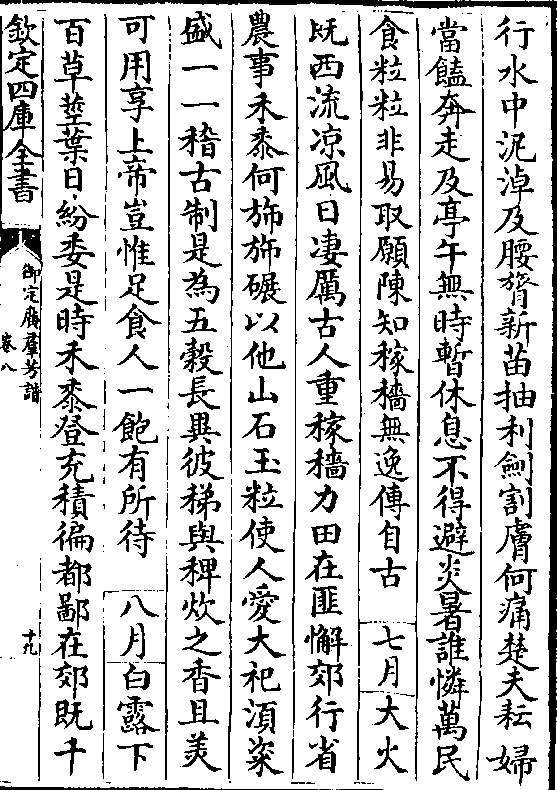 行水中泥淖及腰膂新苗抽利劍割膚何痛楚夫耘婦
當饁奔走及亭午無時暫休息不得避炎暑誰憐萬民
食粒粒非易取願陳知稼穡無逸傳自古 七月大火
既西流凉風日凄厲古人重稼穡力田在匪懈郊行省
農事禾黍何旆旆碾以他山石玉粒使人愛大祀湏粢
盛一一稽古制是為五穀長異彼稊與稗炊之香且美
可用享上帝豈惟足食人一飽有所待 八月白露下
百草莖葉日紛委是時禾黍登充積徧都鄙在郊既千
欽定四庫全書
御定廣羣芳譜
卷八
十九